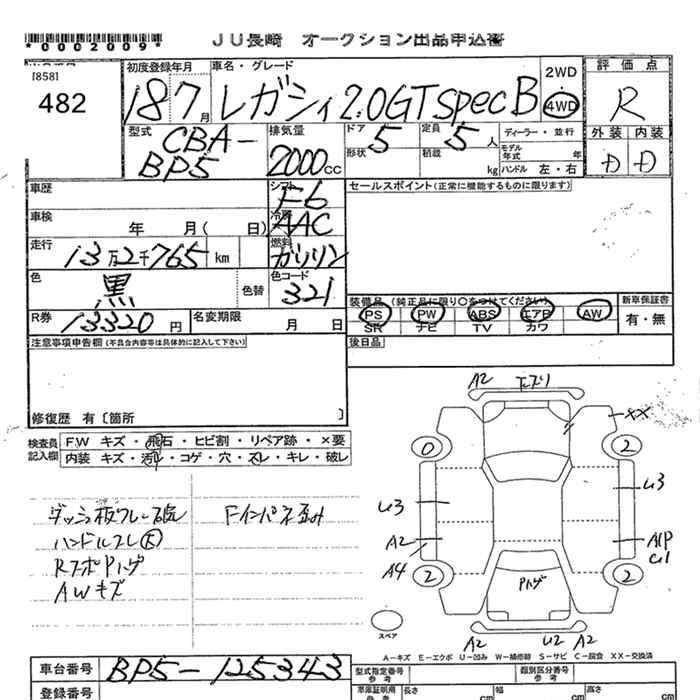 *0002009*
JU長崎 オークション出品申込書
[858]
482
初度登録年月 車名・グレード 2WD 評価点
18 7月 レガシィ 2.0GT spec B 4WD R
型式 CBA-BP5 排気量 2000cc ドア 5 定員 5人 ディーラー・並行 外装 内装
形状 積載 kg モデル年式 年 ハンドル 左・右 D D
車歴 シフト F6 セールスポイント(正常に機能するものに限ります)
車検 年 月( 日) 冷房 AAC
走行 13万2千765 km 燃料 ガソリン
色 黒 色替 色コード 321
装備品(純正品に限り○をつけてください) 新車保証書
R券 13320円 名変期限 月 日 PS PW ABS エアB AW 有・無
SR ナビ TV カワ
注意事項申告欄(不具合内容等は具体的に記入して下さい) 後日品
修復歴 有〔箇所 〕
検査員記入欄 F.W キズ・飛石・ヒビ割・リペア跡・×要
内装 キズ・汚れ・コゲ・穴・スレ・キレ・破レ
A2
XX
0 2
U3 U3
A2
A4
2 2
Pハゲ
スペア
A2 U2 A2
ハンドルスレ
AWキズ
A-キズ E-エクボ U-凹み W-補修跡 S-サビ C-腐食 XX-交換済
車台番号 BP5-125343 型式指定番号 類別区分番号
登録番号 車庫証明用参考 長さ cm 幅 cm 高さ cm